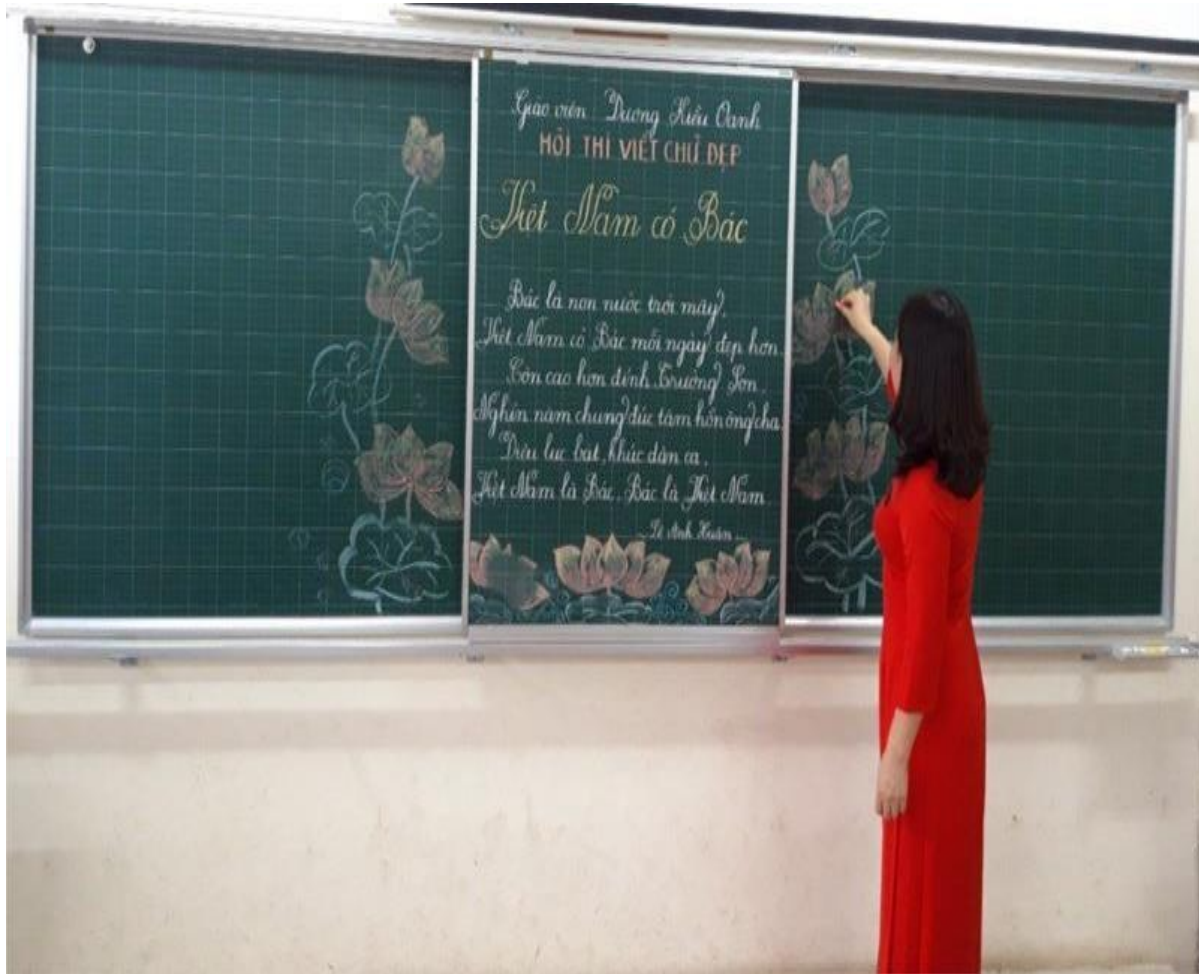 Giáo viên Dương Kiều Oanh
HỘI THI VIẾT CHỮ ĐẸP
Việt Nam có Bác
Bác là non nước trời mây,
Việt Nam có Bác mỗi ngày đẹp hơn
Còn cao hơn đỉnh Trường Sơn
Nghìn năm chung đúc tâm hồn ông cha
Điệu lục bát, khúc dân ca,
Việt Nam là Bác, Bác là Việt Nam
Lê Anh Xuân